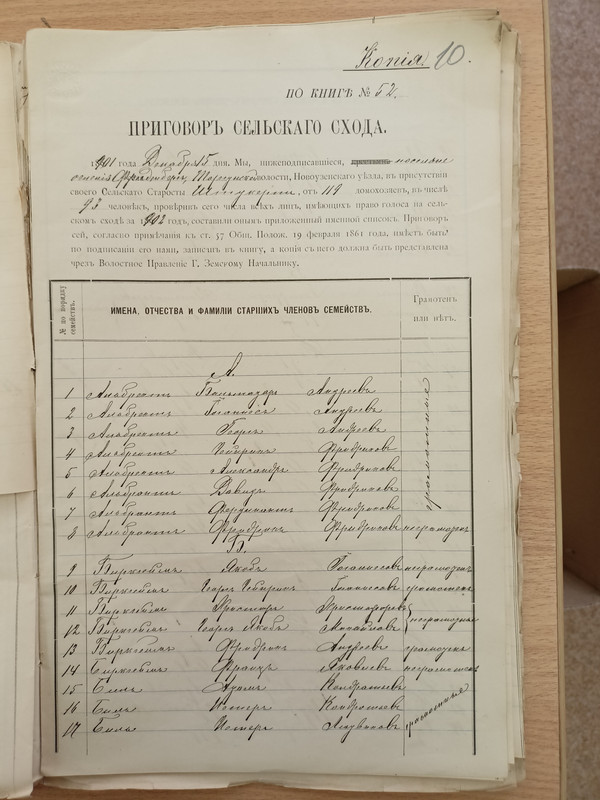 Копія. 10.
ПО КНИГѢ № 52.
ПРИГОВОРЪ СЕЛЬСКАГО СХОДА.
1901 года Декабря 15 дня, Мы, нижеподписавшіеся, поселяне
селенія Торгунской волости, Новоузенскаго уѣзда, въ присутствіи
своего Сельскаго Старосты отъ 119 домохозяевъ, въ числѣ
93 человѣкъ, провѣривъ сего числа всѣхъ лицъ, имѣющихъ право голоса на сель-
скомъ сходѣ за 1902 годъ, составили онымъ приложенный именной списокъ. Приговоръ
сей, согласно примѣчанія къ ст. 57 Общ. Полож. 19 февраля 1861 года, имѣетъ быть
по подписаніи его нами, записанъ въ книгу, а копія съ него должна быть представлена
чрезъ Волостное Правленіе Г. Земскому Начальнику.
№ по порядку семействъ.
ИМЕНА, ОТЧЕСТВА И ФАМИЛІИ СТАРШИХЪ ЧЛЕНОВЪ СЕМЕЙСТВЪ.
Грамотенъ или нѣтъ.
А.
1 Альбрехтъ Бальтазаръ Андреевъ
2 Альбрехтъ Іоганнесъ Андреевъ
3 Альбрехтъ Георгъ Андреевъ
4 Альбрехтъ Гейнрихъ Фридриховъ
5 Альбрехтъ Александръ Фридриховъ
6 Альбрехтъ Давидъ Фридриховъ
7 Альбрехтъ Фердинантъ Фридриховъ
грамотные
8 Альбрехтъ Фридрихъ Фридриховъ неграмотенъ
Б.
9 Биркгеймъ Яковъ Іоганнесовъ неграмотенъ
10 Биркгеймъ Георгъ Гейнрихъ Іоганнесовъ грамотенъ
11 Биркгеймъ Христофъ Христофоровъ
12 Биркгеймъ Георгъ Яковъ Михайловъ неграмотны
13 Биркгеймъ Фридрихъ Андреевъ грамотенъ
14 Биркгеймъ Францъ Яковлевъ неграмотенъ
15 Биль Адамъ Кондратьевъ
16 Биль Петеръ Кондратьевъ
17 Биль Петеръ Людвиговъ
грамотные